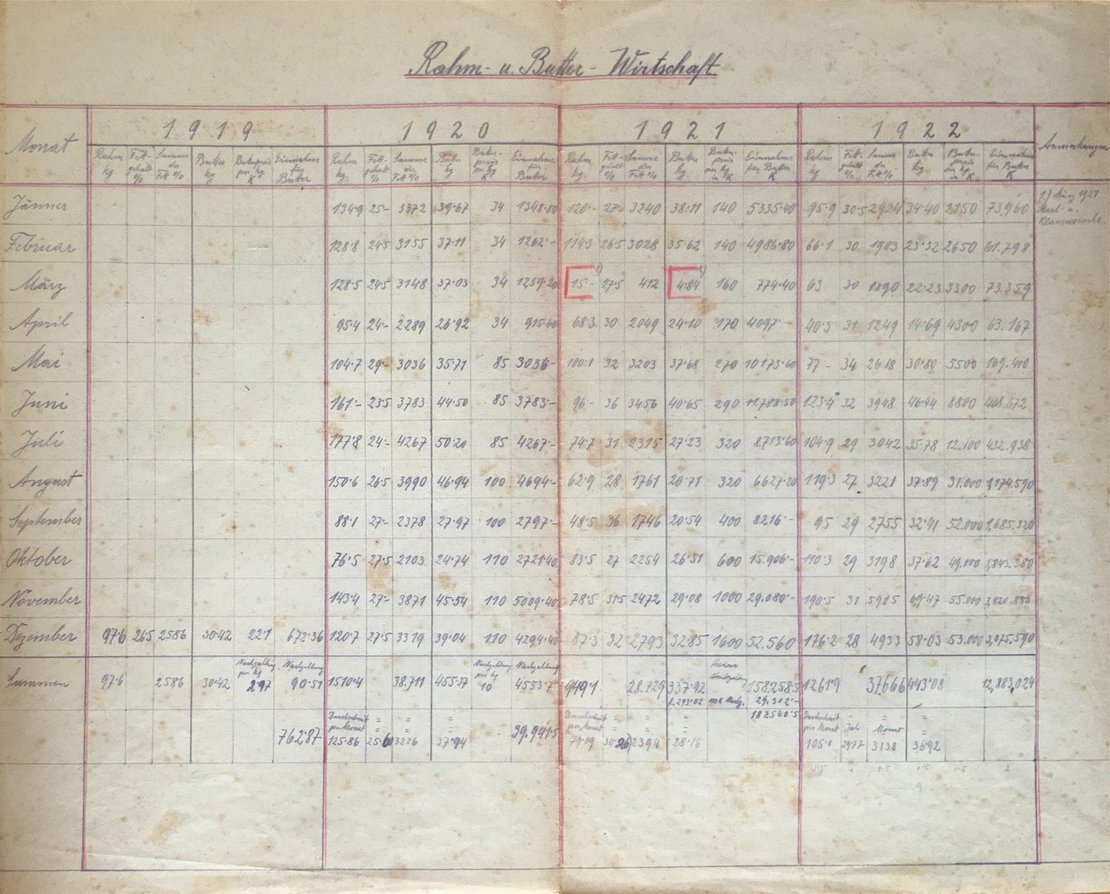 Rahm- u. Butter-Wirtschaft
Monat 1919 1920 1921 1922 Anmerkungen
Rahm kg Fettgehalt % Summe der Fett % Butter kg Butterpreis per kg K Einnahme f. Butter Rahm kg Fettgehalt % Summe der Fett % Butter kg Butterpreis per kg K Einnahme Butter Rahm kg Fettgehalt % Summe der Fett % Butter kg Butterpreis per kg in K Einnahme per Butter Rahm kg Fettgehalt % Summe der Fett % Butter kg Butterpreis per kg in K Einnahme per Butter K
Jänner 134·9 25·- 3372 39·67 34 1348·80 120·- 27·- 3240 38·11 140 5335·40 95·9 30·5 2924 34·40 2150 73,960 1) März 1921 Maul- u. Klauenseuche
Februar 128·8 24·5 3155 37·11 34 1262·- 114·3 26·5 3028 35·62 140 4986·80 66·1 30 1983 23·32 2650 61.798
März 128·5 24·5 3148 37·03 34 1259·20 15·- 1) 27·5 412 4·84 1) 160 774·40 63 30 1890 22·23 3300 73.359
April 95·4 24·- 2289 26·92 34 915·60 68·3 30 2049 24·10 170 4097·- 40·3 31 1249 14·69 4300 63.167
Mai 104·7 29·- 3036 35·71 85 3036·- 100·1 32 3203 37·68 270 10173·60 77·- 34 2618 30·80 5500 169.400
Juni 161·- 23·5 3783 44·50 85 3783·- 96·- 36 3456 40·65 290 11.788·50 123·4 32 3948 46·44 8800 408.672
Juli 177·8 24·- 4267 50·20 85 4267·- 74·7 31 2315 27·23 320 8713·60 104·9 29 3042 35·78 12.100 432.938
August 150·6 26·5 3990 46·94 100 4694·- 62·9 28 1761 20·71 320 6627·20 119·3 27 3221 37·89 31.000 1,174.590
September 88·1 27·- 2378 27·97 100 2797·- 48·5 36 1746 20·54 400 8216·- 95 29 2755 32·41 52.000 1,685,320
Oktober 76·5 27·5 2103 24·74 110 2721·40 83·5 27 2254 26·51 600 15.906·- 110·3 29 3198 37·62 49.000 1,843.380
November 143·4 27·- 3871 45·54 110 5009·40 78·5 31·5 2472 29·08 1000 29.080·- 190·5 31 5905 69·47 55.000 3,820.850
Dezember 97·6 26·5 2586 30·42 22·1 672·36 120·7 27·5 3319 39·04 110 4294·40 87·3 32 2793 32·85 1600 52.560 176·2 28 4933 58·03 53.000 3,075,590
Nachzahlung per kg Nachzahlung Nachzahlung per kg Nachzahlung
Summen 97·6 2586 30·42 2·97 90·51 1510·4 38.711 455·37 10 4553·7 949·1 28.729 337·92 158258·5 1261·9 37666 443·08 12,883,024
1.293·02 29.302·-
187.560·5
Durchschnitt per Monat = = = Durchschnitt per Monat = = = Durchschnitt per Monat Jahr Monat =
762·87 125·86 25·6 3226 37·94 39.941·5 79·09 30·26 2394 28·16 105·1 29·17 3138 36·92